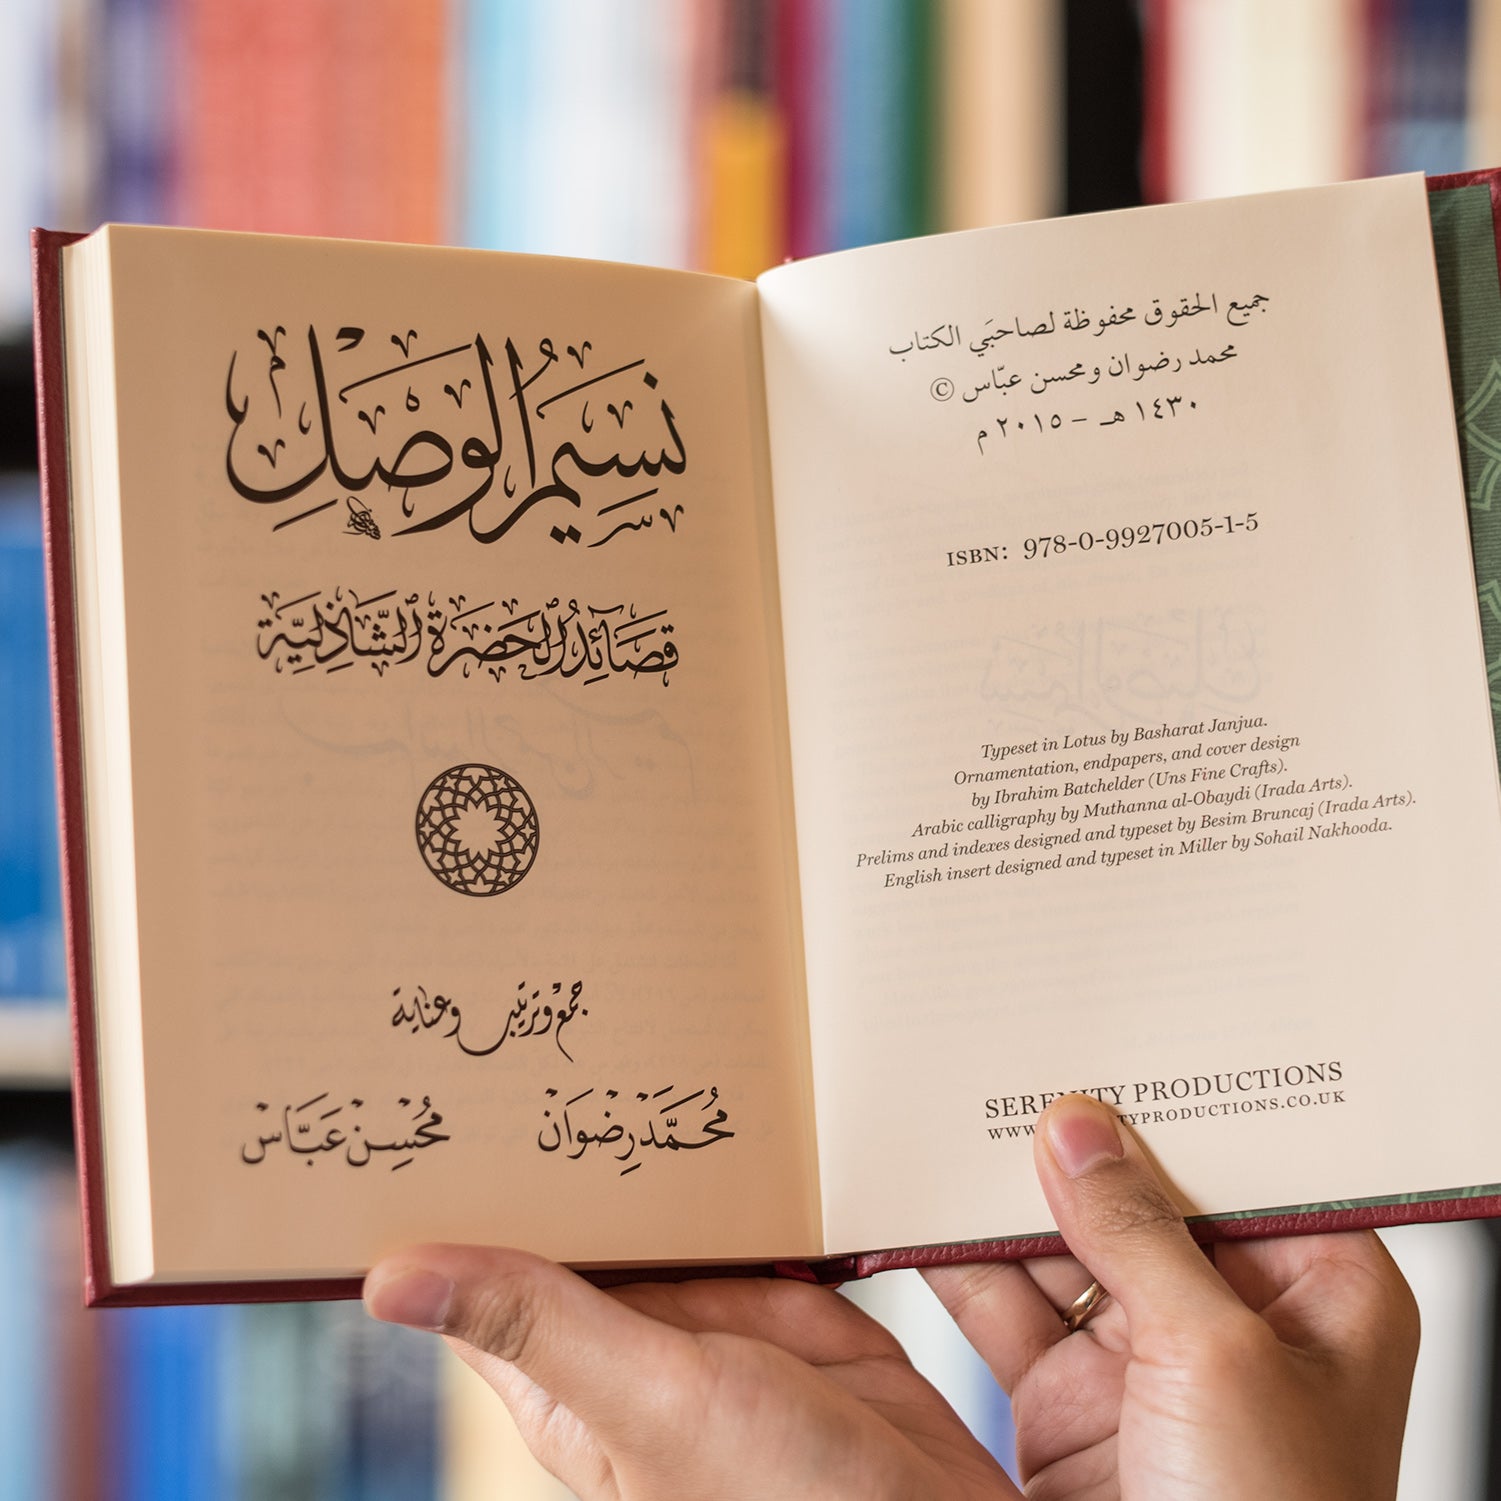 جميع الحقوق محفوظة لصاحبَي الكتاب
محمد رضوان ومحسن عبّاس ©
١٤٣٠ هـ – ٢٠١٥ م
ISBN: 978-0-9927005-1-5
Typeset in Lotus by Basharat Janjua.
Ornamentation, endpapers, and cover design
by Ibrahim Batchelder (Uns Fine Crafts).
Arabic calligraphy by Muthanna al-Obaydi (Irada Arts).
Prelims and indexes designed and typeset by Besim Bruncaj (Irada Arts).
English insert designed and typeset in Miller by Sohail Nakhooda.
SERENITY PRODUCTIONS
WWW TYPRODUCTIONS.CO.UK
نَسِيمُ الوَصْلِ
قَصَائِدُ الحَضْرَةِ الشَّاذِلِيَّة
جمع وترتيب وعناية
مُحَمَّد رِضْوَان
مُحْسِن عَبَّاس